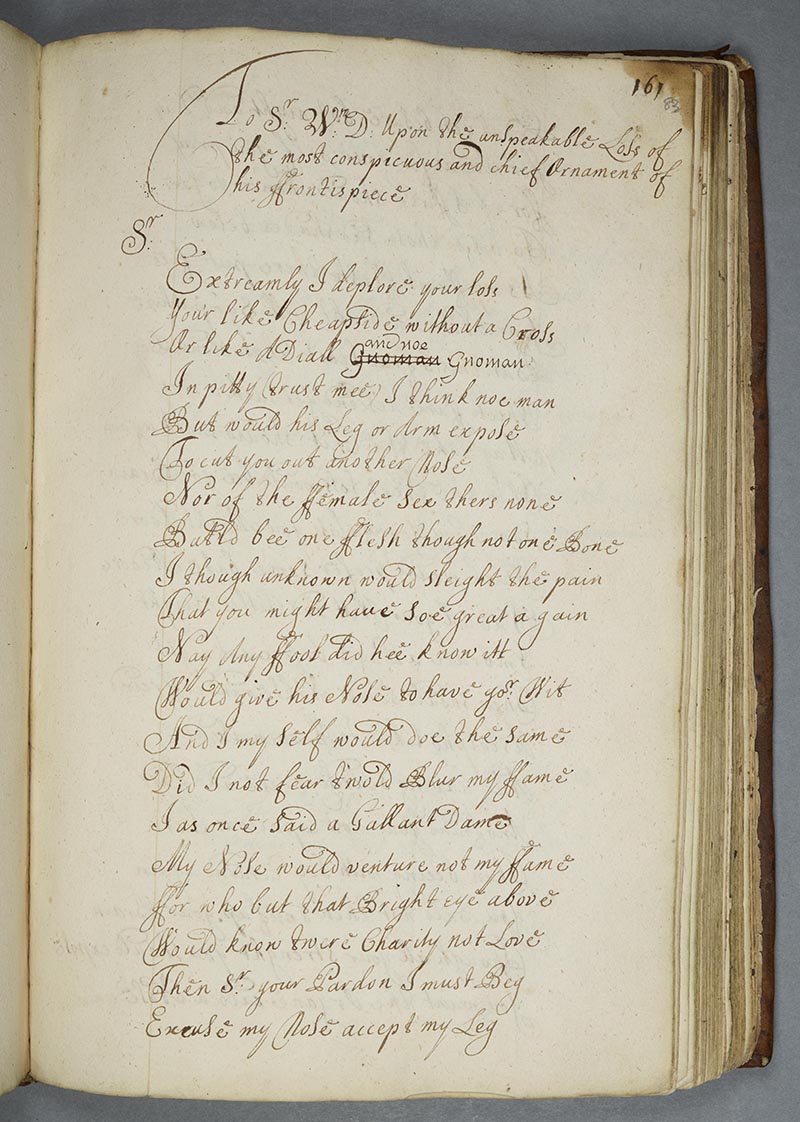 161
83
To Sr. Wm: D: Upon the unspeakable Loss of
the most conspicuous and chief Ornament of
his ffrontispiece
Sr.
Extreamly I deplore your loss
Your like Cheapside without a Cross
Or like A Diall and noe Gnoman Gnoman
In pitty (trust mee) I think noe man
But would his Leg or Arm expose
To cut you out another Nose
Nor of the ffemale Sex thers none
But'ld bee one fflesh though not one Bone
I though unknown would sleight the pain
That you might have soe great a gain
Nay Any ffool did hee know itt
Would give his Nose to have yor. Wit
And I my Self would doe the same
Did I not fear t'wold Blur my ffame
I as once said a Gallant Dame
My Nose would venture not my ffame
ffor who but that Bright eye above
Would know twere Charity not Love
Then Sr. your Pardon I must Beg
Excuse my Nose accept my Leg